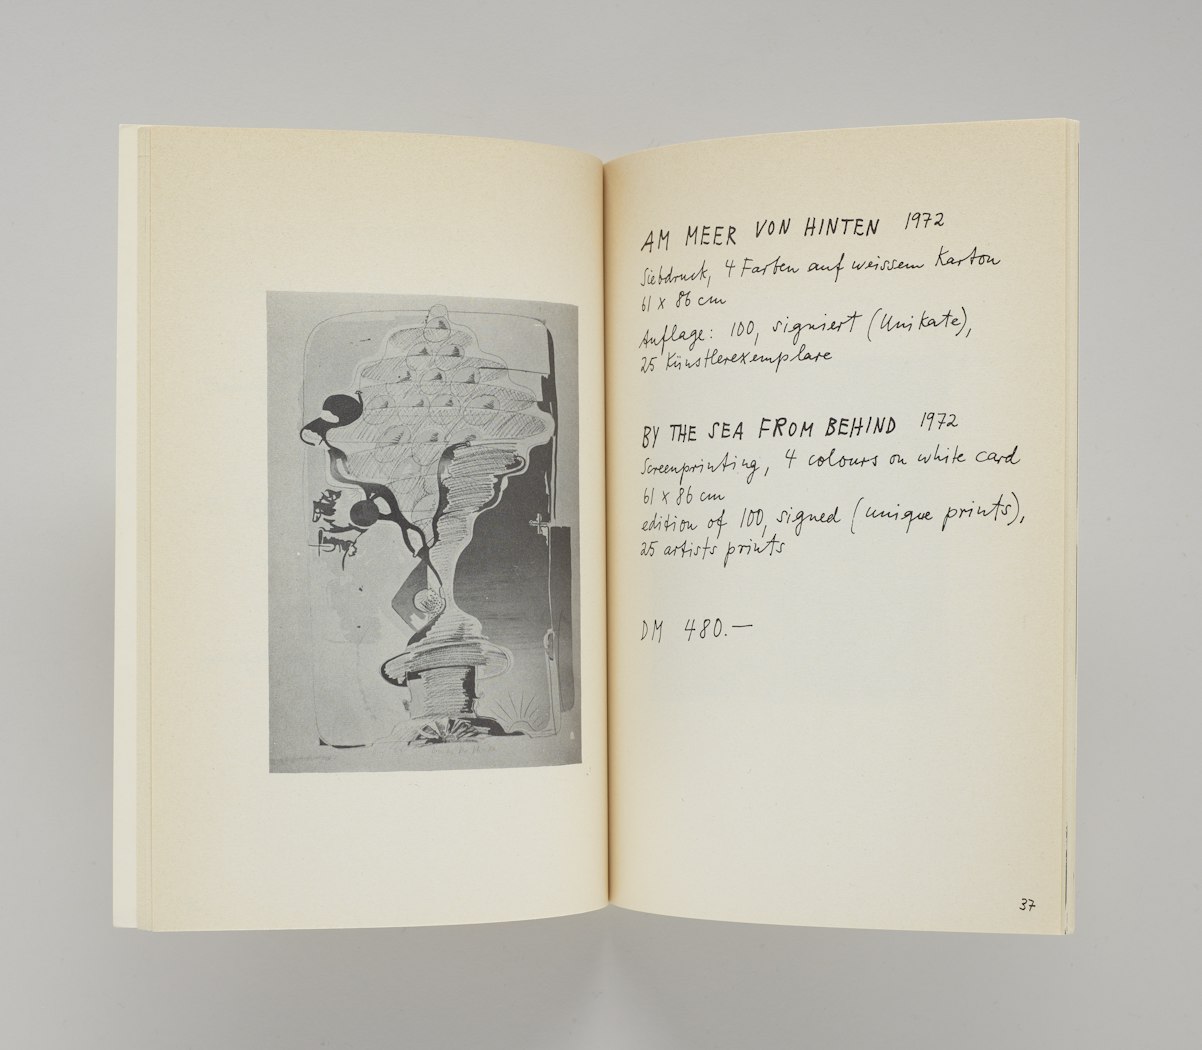 AM MEER VON HINTEN 1972
Siebdruck, 4 Farben auf weissem Karton
61 x 86 cm
Auflage: 100, signiert (Unikate),
25 Künstlerexemplare
BY THE SEA FROM BEHIND 1972
Screenprinting, 4 colours on white card
61 x 86 cm
edition of 100, signed (unique prints),
25 artists prints
DM 480.—
37